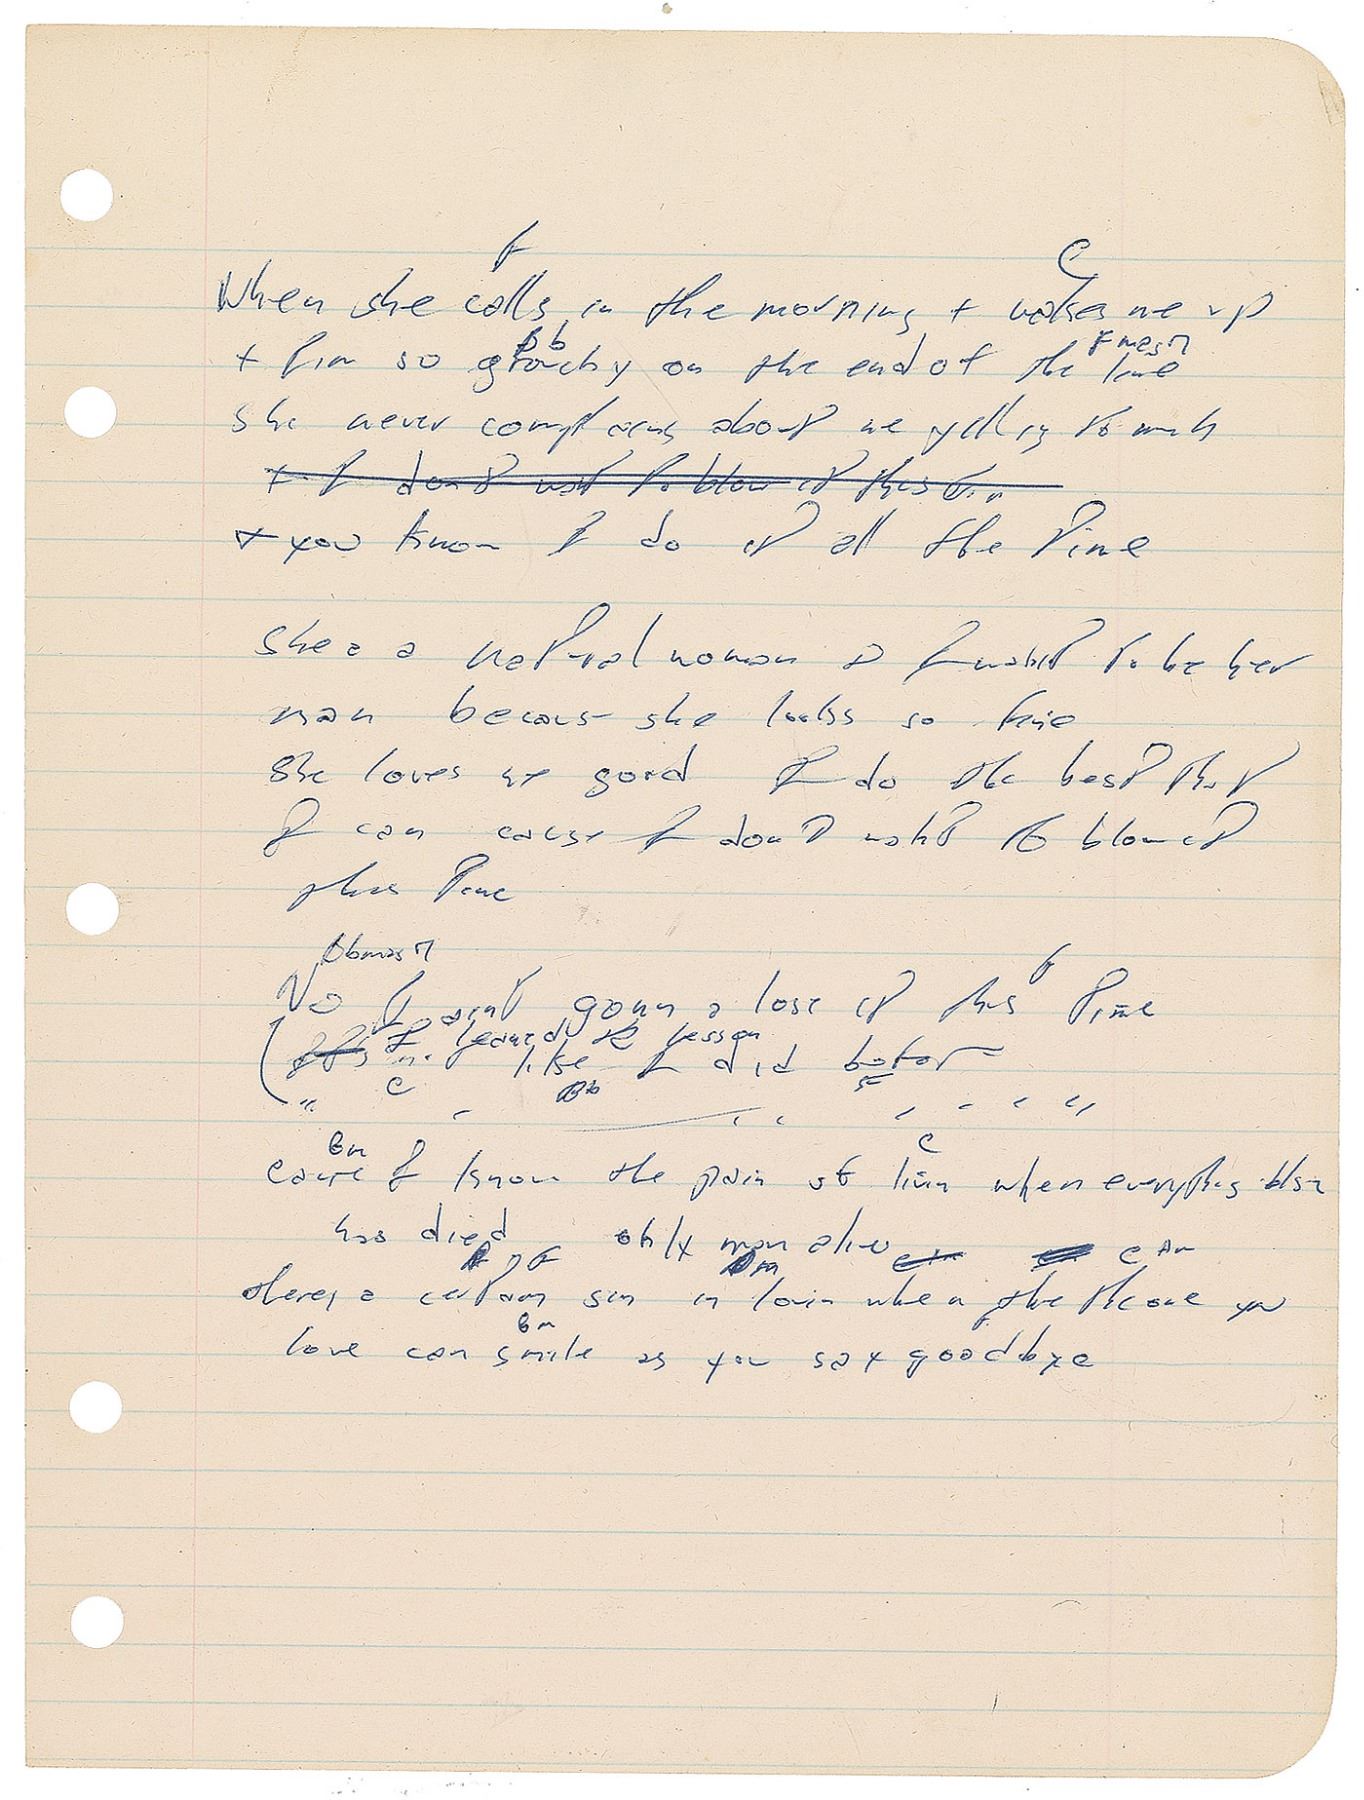 F C
When she calls in the morning + wakes me up
Bb Fmaj7
+ I'm so grouchy on the end of the line
she never complains about me yelling to much
+ I don't want to blow it this time
+ you know I do it all the time
shes a natural woman & I want to be her
man because she looks so fine
She loves me good I do the best that
I can cause I don't want to blow it
this time
Bbmaj7 F
No I aint gonna lose it this time
I learned the lesson
like I did before
C Bb F
" " " " " " " "
Gm C
cause I know the pain of livin when everything else
has died only man alive
F Dm C Am
theres a certain sin in lovin when the the one you
Gm
love can smile as you say goodbye